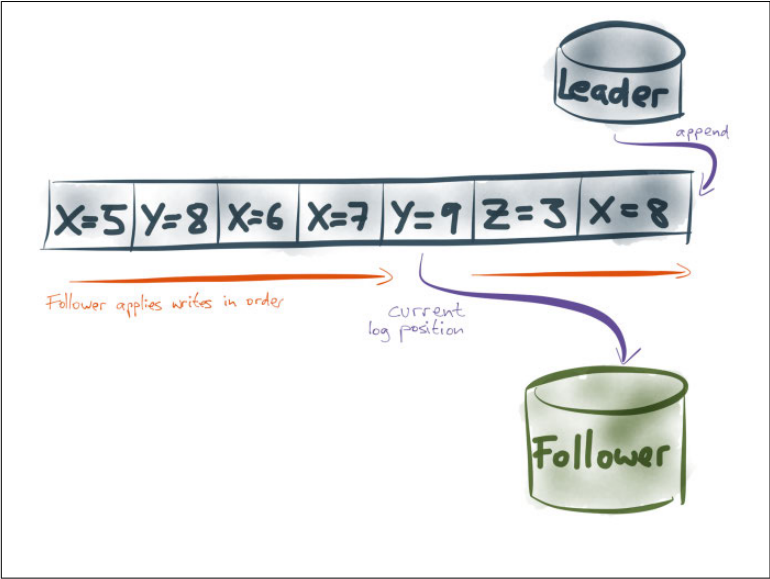 Leader
append
X=5 Y=8 X=6 X=7 Y=9 Z=3 X=8
Follower applies writes in order
current
log position
Follower